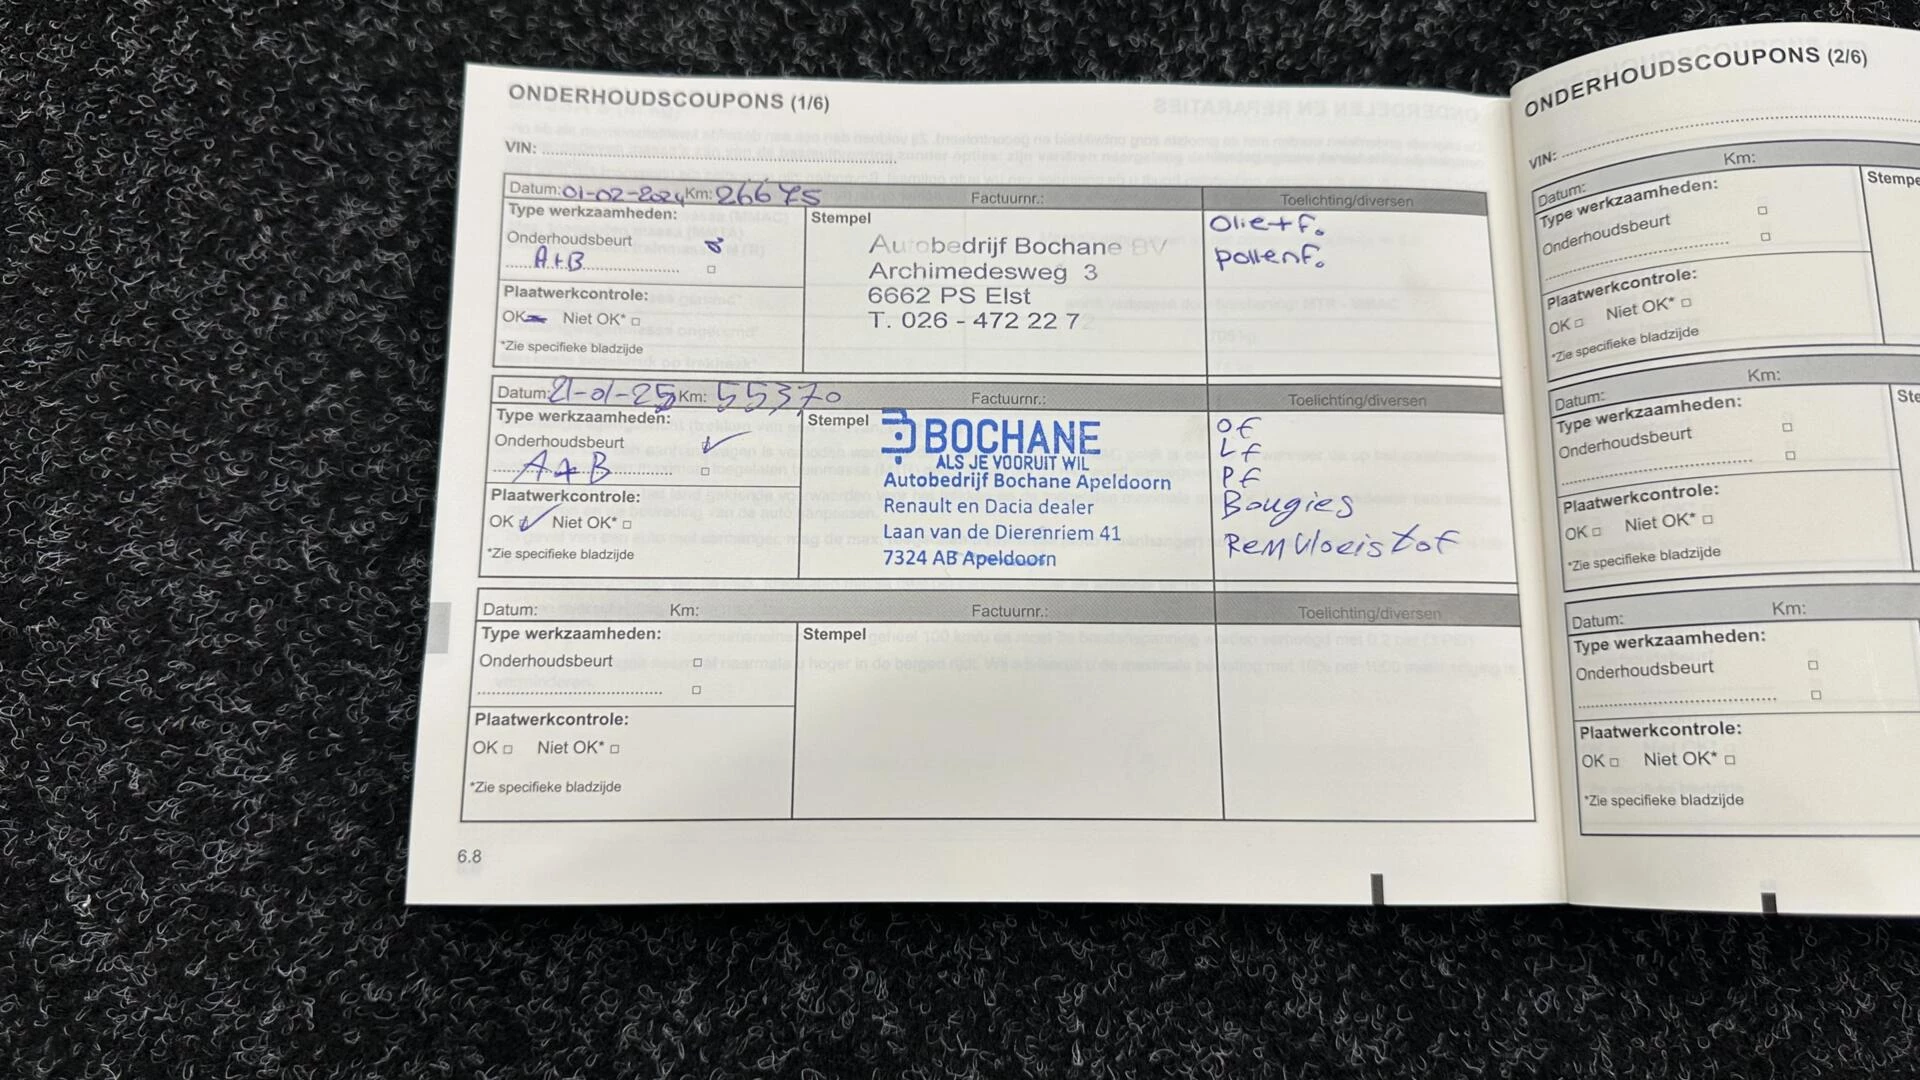 ONDERHOUDSCOUPONS (1/6)
VIN:
Datum: 01-02-2024 Km: 26675 Factuurnr.: Toelichting/diversen
Type werkzaamheden:
Onderhoudsbeurt
A+B
Plaatwerkcontrole:
OK Niet OK*
*Zie specifieke bladzijde
Stempel
Autobedrijf Bochane BV
Archimedesweg 3
6662 PS Elst
T. 026 - 472 22 72
Olie+f.
pollenf.
Datum: 21-01-25 Km: 55370 Factuurnr.: Toelichting/diversen
Type werkzaamheden:
Onderhoudsbeurt
A+B
Plaatwerkcontrole:
OK Niet OK*
*Zie specifieke bladzijde
Stempel
BOCHANE
ALS JE VOORUIT WIL
Autobedrijf Bochane Apeldoorn
Renault en Dacia dealer
Laan van de Dierenriem 41
7324 AB Apeldoorn
Of
Lf
Pf
Bougies
Remvloeistof
Datum: Km: Factuurnr.: Toelichting/diversen
Type werkzaamheden:
Onderhoudsbeurt
Plaatwerkcontrole:
OK Niet OK*
*Zie specifieke bladzijde
Stempel
6.8
ONDERHOUDSCOUPONS (2/6)
VIN:
Datum: Km:
Type werkzaamheden:
Onderhoudsbeurt
Plaatwerkcontrole:
OK Niet OK*
*Zie specifieke bladzijde
Stempe
Datum: Km:
Type werkzaamheden:
Onderhoudsbeurt
Plaatwerkcontrole:
OK Niet OK*
*Zie specifieke bladzijde
Ste
Datum: Km:
Type werkzaamheden:
Onderhoudsbeurt
Plaatwerkcontrole:
OK Niet OK*
*Zie specifieke bladzijde